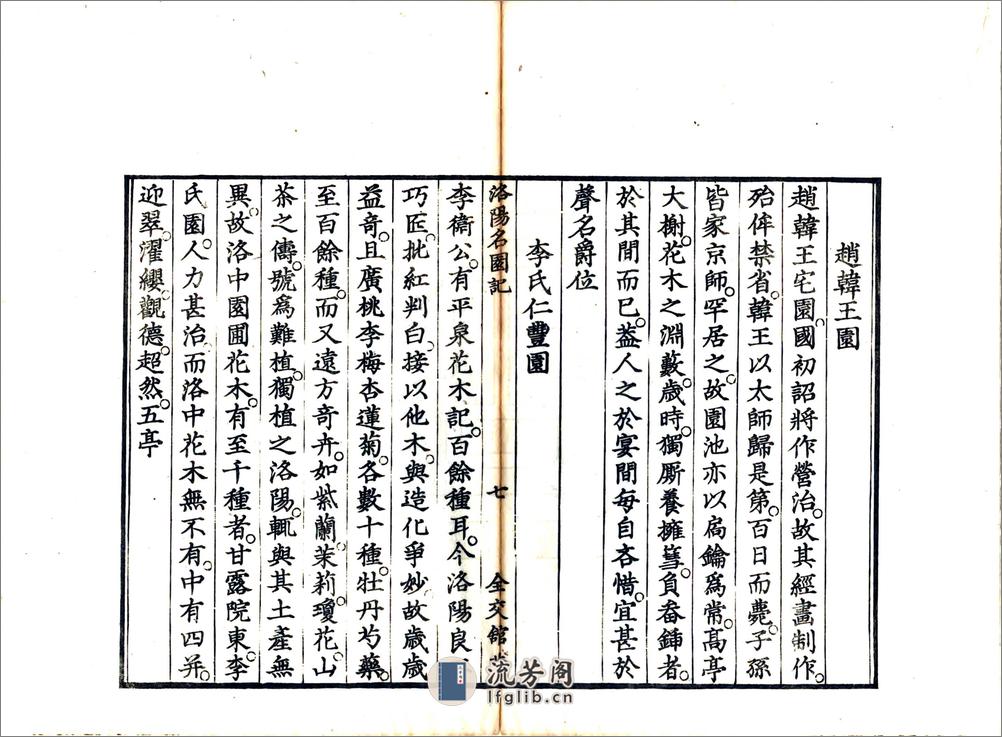 趙韓王園
趙韓王宅園。國初詔將作營治。故其經畫制作。
殆侔禁省。韓王以太師歸是第。百日而薨。子孫
皆家京師。罕居之。故園池亦以扃鑰爲常。高亭
大榭。花木之淵藪。歲時。獨厮養擁篲。負畚鍤者。
於其間而已。蓋人之於宴間每自吝惜。宜甚於
聲名爵位
李氏仁豐園
洛陽名園記 七 全交館
李衛公。有平泉花木記。百餘種耳。今洛陽良
巧匠。批紅判白。接以他木。與造化爭妙故歲歲
益奇。且廣桃李梅杏蓮菊。各數十種。牡丹芍藥。
至百餘種。而又遠方奇卉。如紫蘭。茉莉。瓊花。山
茶之儔。號爲難植。獨植之洛陽。輒與其土產無
異。故洛中園圃花木。有至千種者。甘露院東。李
氏園。人力甚治而洛中花木無不有。中有四并。
迎翠。濯纓。觀德。超然。五亭
流芳阁
lfglib.cn